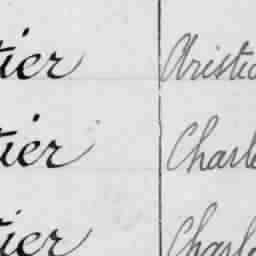 tier Aristid
tier Charle
tier Charle